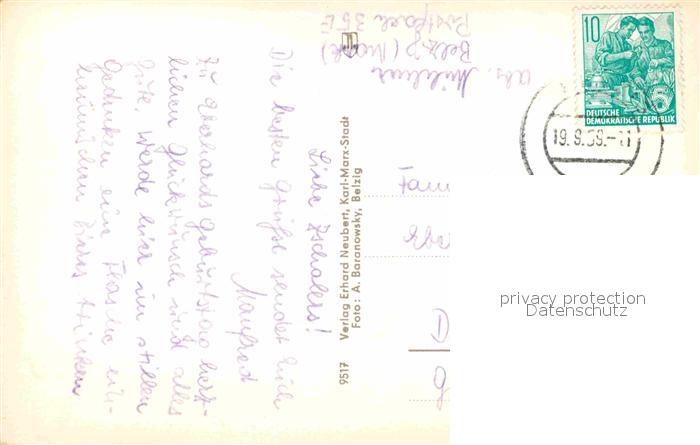 Liebe Zschalers!
Die besten Grüße sendet Euch
Manfred
Zu Eberhards Geburtstag herz-
lichen Glückwunsch und alles
Gute. Werde hier im stillen
Gedenken eine Flasche ein-
heimischen Bieres trinken
Abs.
Belzig (Mark)
Postfach 35 E
9517 Verlag Erhard Neubert, Karl-Marx-Stadt
Foto: A. Baranowsky, Belzig
Fam
10
DEUTSCHE
DEMOKRATISCHE REPUBLIK
19.9.59.-11
privacy protection
Datenschutz